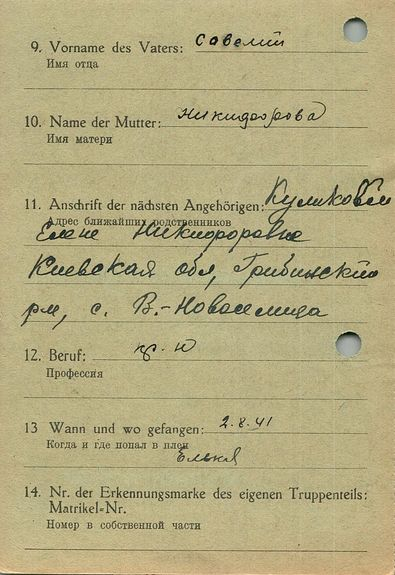 9. Vorname des Vaters: Савелий
Имя отца
10. Name der Mutter: Никифорова
Имя матери
11. Anschrift der nächsten Angehörigen: Куликовой
Адрес ближайших родственников
Елене Никифоровне
Киевская обл, Грибинский
рн, с. В.-Новоселица
12. Beruf: кр-н
Профессия
13 Wann und wo gefangen: 2.8.41
Когда и где попал в плен
Ельня
14. Nr. der Erkennungsmarke des eigenen Truppenteils:
Matrikel-Nr.
Номер в собственной части